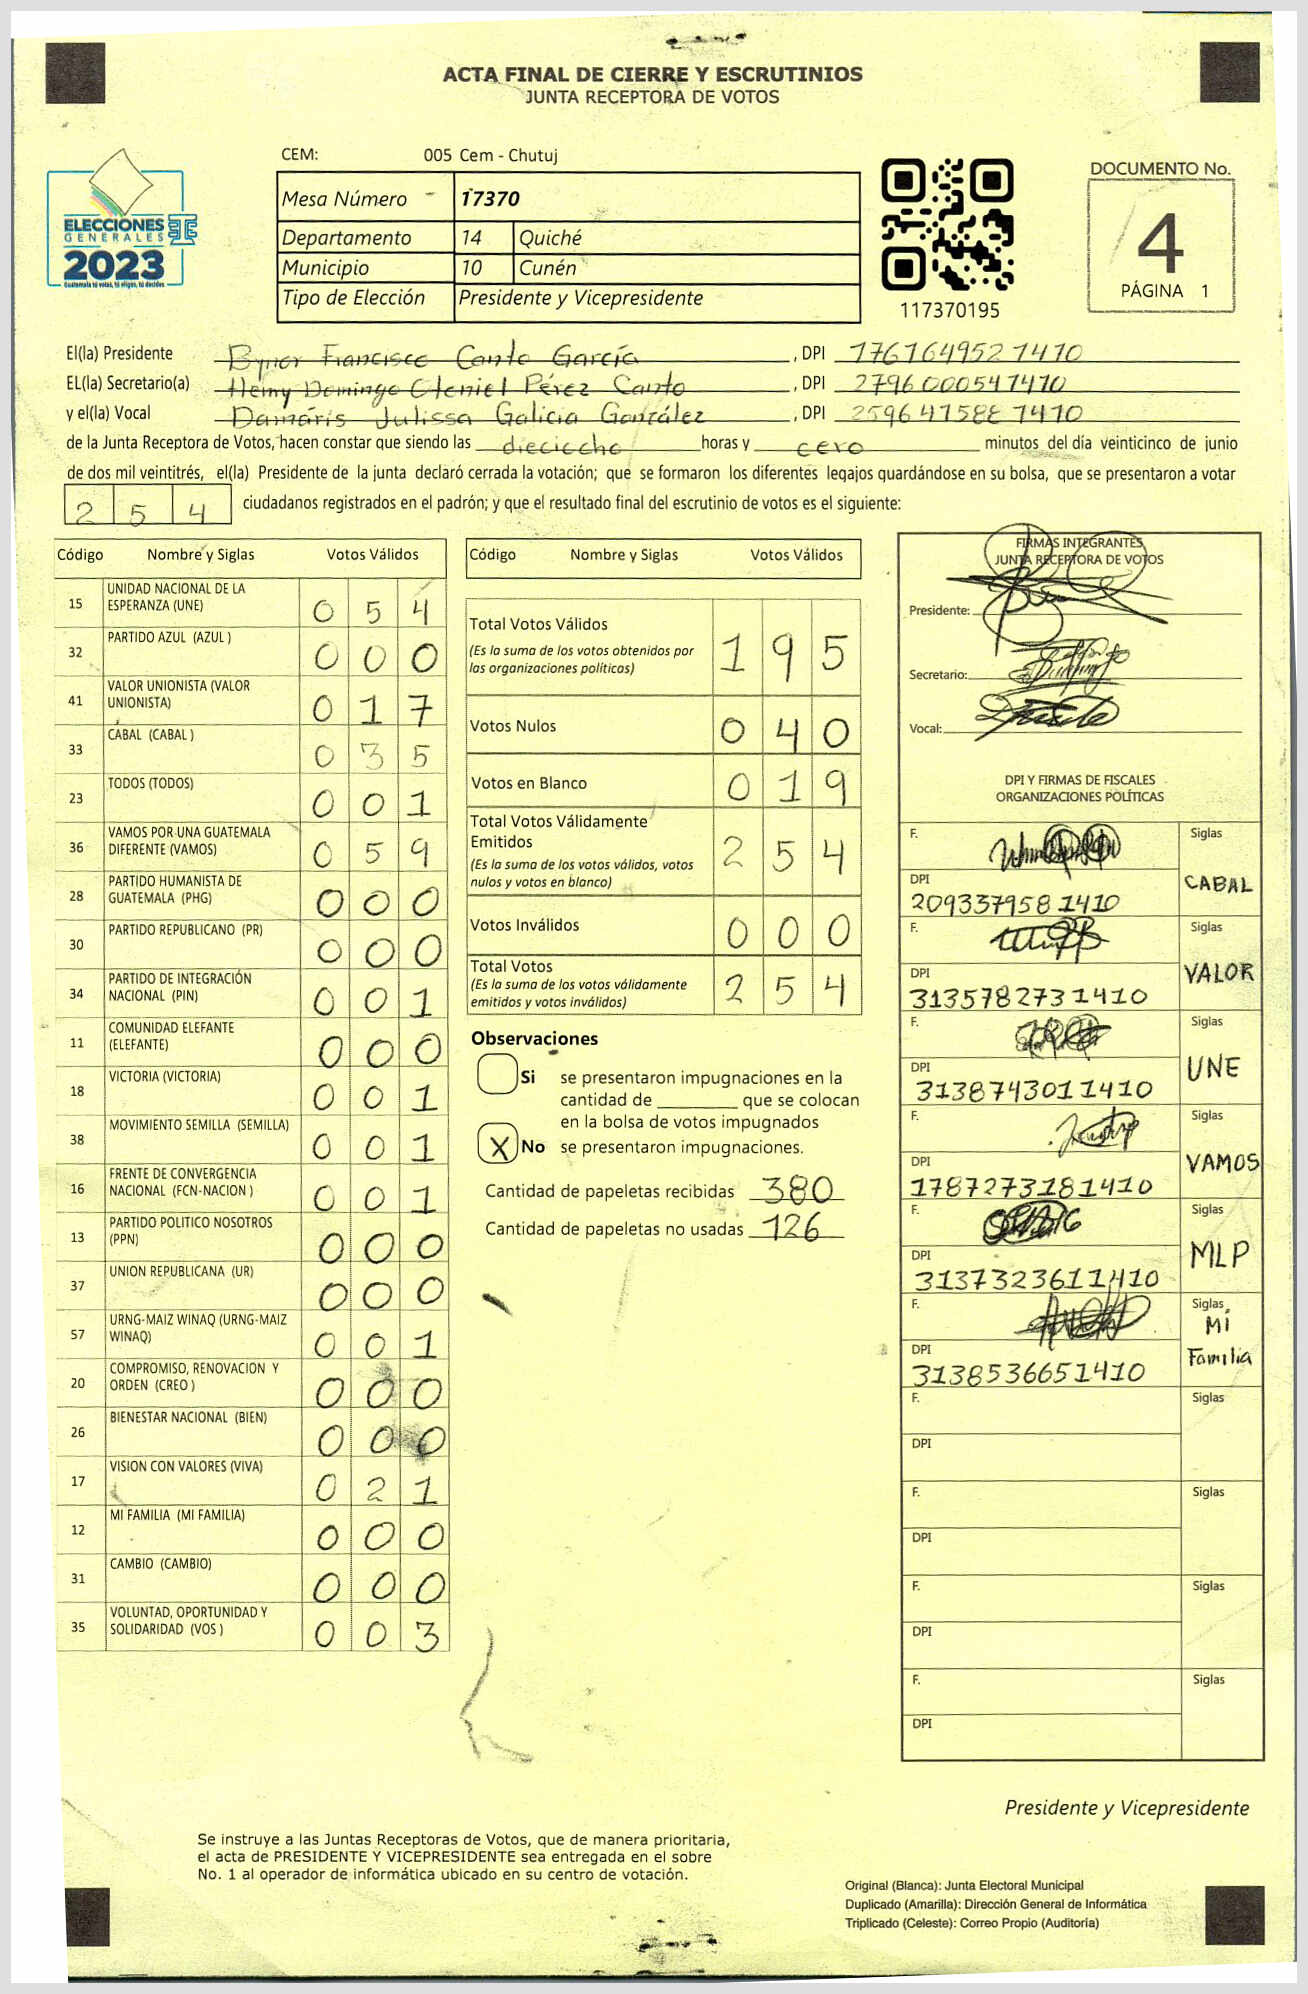 ACTA FINAL DE CIERRE Y ESCRUTINIOS
JUNTA RECEPTORA DE VOTOS
CEM: 005 Cem - Chutuj
Mesa Número 17370
Departamento 14 Quiché
Municipio 10 Cunén
Tipo de Elección Presidente y Vicepresidente
ELECCIONES
GENERALES
2023
Guatemala tú votas, tú eliges, tú decides
117370195
DOCUMENTO No.
4
PÁGINA 1
El(la) Presidente Byner Francisco Canto García, DPI 1761649521410
EL(la) Secretario(a) Domingo Pérez Canto, DPI 2796000541410
y el(la) Vocal Damáris Julissa Galicia González, DPI 2596415881410
de la Junta Receptora de Votos, hacen constar que siendo las dieciocho horas y cero minutos del día veinticinco de junio
de dos mil veintitrés, el(la) Presidente de la junta declaró cerrada la votación; que se formaron los diferentes legajos guardándose en su bolsa, que se presentaron a votar
254 ciudadanos registrados en el padrón; y que el resultado final del escrutinio de votos es el siguiente:
Código Nombre y Siglas Votos Válidos
15 UNIDAD NACIONAL DE LA ESPERANZA (UNE) 0 5 4
32 PARTIDO AZUL (AZUL ) 0 0 0
41 VALOR UNIONISTA (VALOR UNIONISTA) 0 1 7
33 CABAL (CABAL ) 0 3 5
23 TODOS (TODOS) 0 0 1
36 VAMOS POR UNA GUATEMALA DIFERENTE (VAMOS) 0 5 9
28 PARTIDO HUMANISTA DE GUATEMALA (PHG) 0 0 0
30 PARTIDO REPUBLICANO (PR) 0 0 0
34 PARTIDO DE INTEGRACIÓN NACIONAL (PIN) 0 0 1
11 COMUNIDAD ELEFANTE (ELEFANTE) 0 0 0
18 VICTORIA (VICTORIA) 0 0 1
38 MOVIMIENTO SEMILLA (SEMILLA) 0 0 1
16 FRENTE DE CONVERGENCIA NACIONAL (FCN-NACION ) 0 0 1
13 PARTIDO POLITICO NOSOTROS (PPN) 0 0 0
37 UNION REPUBLICANA (UR) 0 0 0
57 URNG-MAIZ WINAQ (URNG-MAIZ WINAQ) 0 0 1
20 COMPROMISO, RENOVACION Y ORDEN (CREO ) 0 0 0
26 BIENESTAR NACIONAL (BIEN) 0 0 0
17 VISION CON VALORES (VIVA) 0 2 1
12 MI FAMILIA (MI FAMILIA) 0 0 0
31 CAMBIO (CAMBIO) 0 0 0
35 VOLUNTAD, OPORTUNIDAD Y SOLIDARIDAD (VOS ) 0 0 3
Código Nombre y Siglas Votos Válidos
Total Votos Válidos 1 9 5
(Es la suma de los votos obtenidos por
las organizaciones políticas)
Votos Nulos 0 4 0
Votos en Blanco 0 1 9
Total Votos Válidamente
Emitidos 2 5 4
(Es la suma de los votos válidos, votos
nulos y votos en blanco)
Votos Inválidos 0 0 0
Total Votos 2 5 4
(Es la suma de los votos válidamente
emitidos y votos inválidos)
Observaciones
Si se presentaron impugnaciones en la
cantidad de ________ que se colocan
en la bolsa de votos impugnados
X No se presentaron impugnaciones.
Cantidad de papeletas recibidas 380
Cantidad de papeletas no usadas 126
FIRMAS INTEGRANTES
JUNTA RECEPTORA DE VOTOS
Presidente:
Secretario:
Vocal:
DPI Y FIRMAS DE FISCALES
ORGANIZACIONES POLÍTICAS
F. Siglas
DPI CABAL
209337958 1410
F. Siglas
DPI VALOR
3135782731410
F. Siglas
DPI UNE
3138743011410
F. Siglas
DPI VAMOS
1787273181410
F. Siglas
DPI MLP
3137323611410
F. Siglas
Mi
DPI Familia
3138536651410
F. Siglas
DPI
F. Siglas
DPI
F. Siglas
DPI
F. Siglas
DPI
Presidente y Vicepresidente
Se instruye a las Juntas Receptoras de Votos, que de manera prioritaria,
el acta de PRESIDENTE Y VICEPRESIDENTE sea entregada en el sobre
No. 1 al operador de informática ubicado en su centro de votación.
Original (Blanca): Junta Electoral Municipal
Duplicado (Amarilla): Dirección General de Informática
Triplicado (Celeste): Correo Propio (Auditoría)